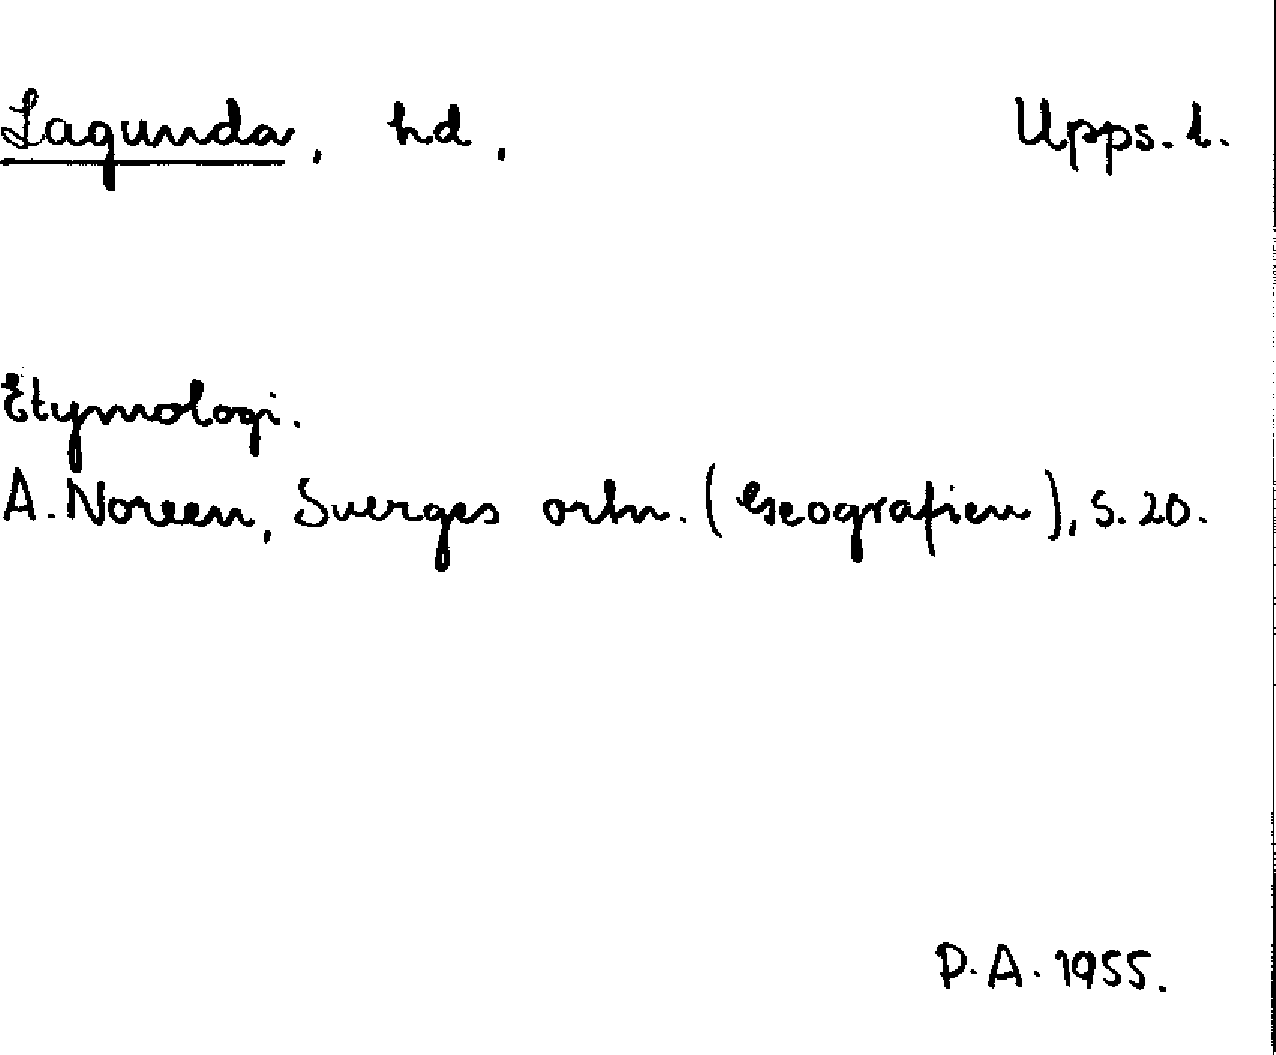 Lagunda, hd, Upps. l.
Etymologi.
A. Noreen, Sverges ortn. (Geografien), s. 20.
P. A. 1955.